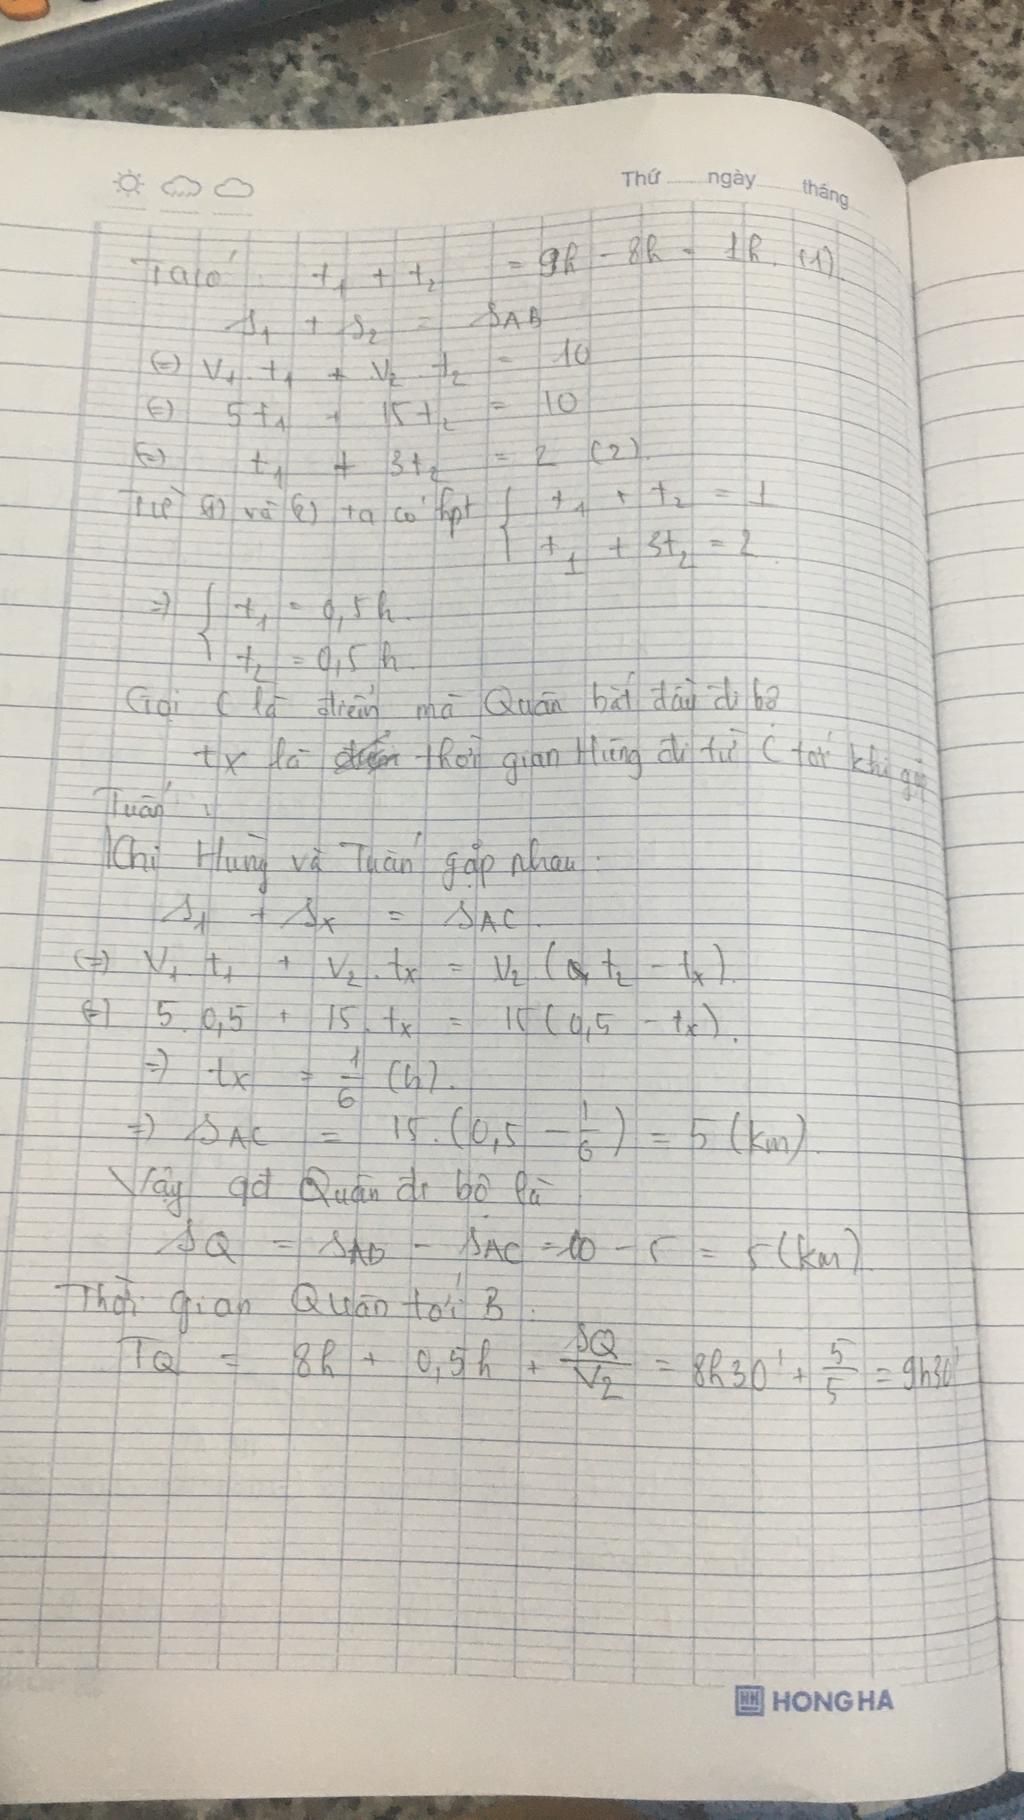 Thứ ngày tháng
Ta có t₁ + t₂ = 9h - 8h = 1h. (1)
S₁ + S₂ = SAB
(=) V₁.t₁ + V₂.t₂ = 10
(=) 5t₁ + 15t₂ = 10
(=) t₁ + 3t₂ = 2 (2).
Từ (1) và (2) ta có hpt { t₁ + t₂ = 1
t₁ + 3t₂ = 2
=) { t₁ = 0,5h.
t₂ = 0,5h.
Gọi C là điểm mà Quân bắt đầu đi bộ
tx là thời gian Hùng đi từ C tới khi gặp
Tuấn.
Khi Hùng và Tuấn gặp nhau.
S₁ + Sx = SAC.
(=) V₁ t₁ + V₂.tx = V₂ ( t₂ - tx).
(=) 5.0,5 + 15.tx = 15(0,5 - tx).
=) tx = 1/6 (h).
=) SAC = 15.(0,5 - 1/6) = 5 (km).
Vậy qđ Quân đi bộ là
SQ = SAB - SAC = 10 - 5 = 5 (km)
Thời gian Quân tới B.
TQ = 8h + 0,5h + SQ/V₂ = 8h30' + 5/5 = 9h30'
HH HONG HA